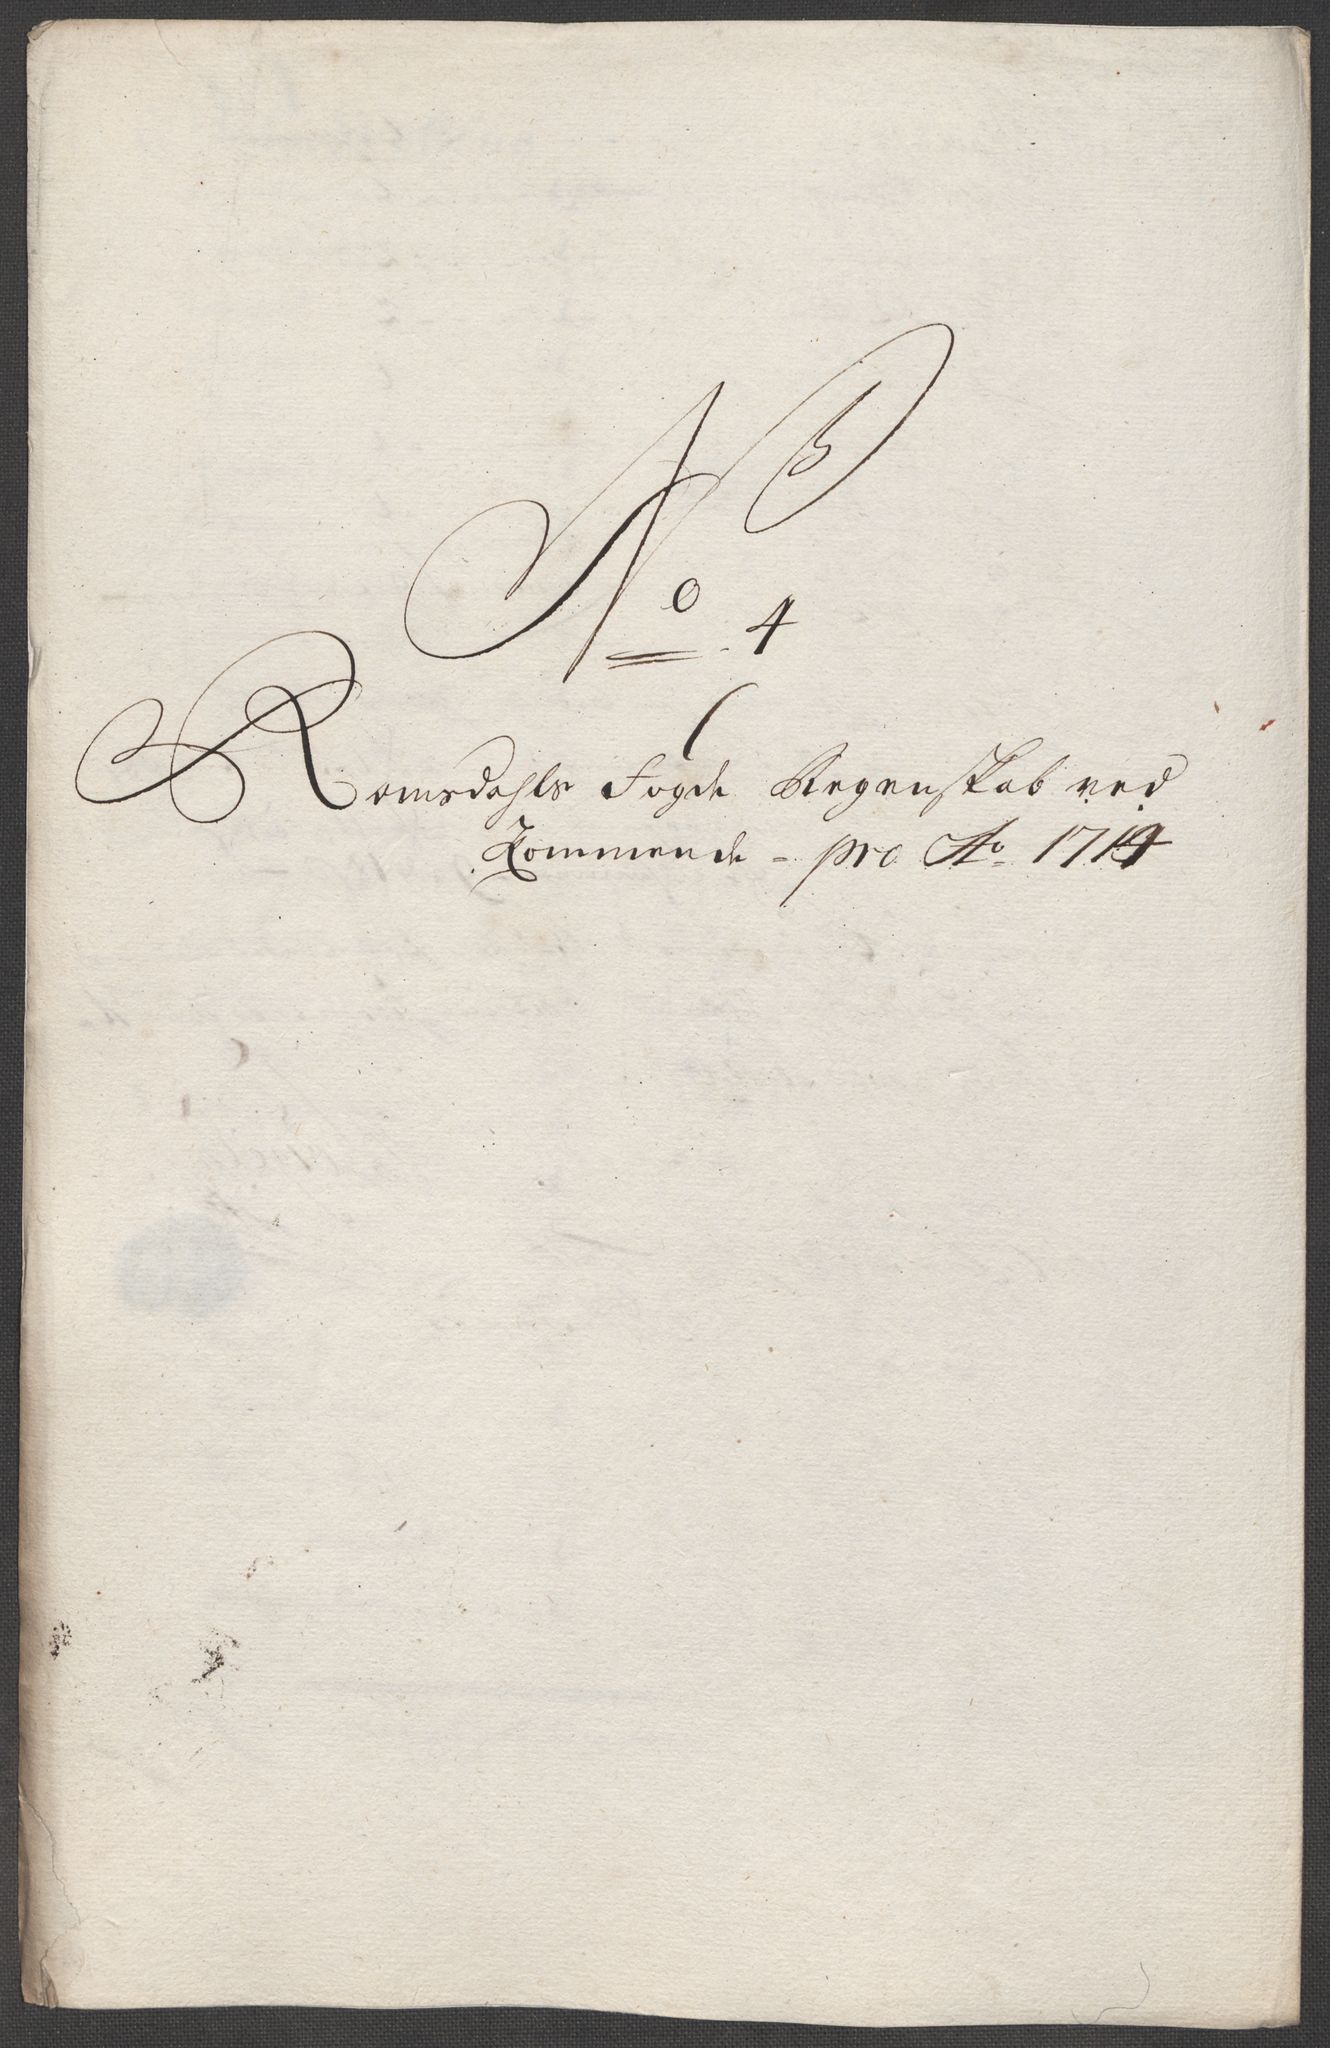 No. 4
Romsdahls Fogde Regenskab ved
Kommende - pro Ao 1714